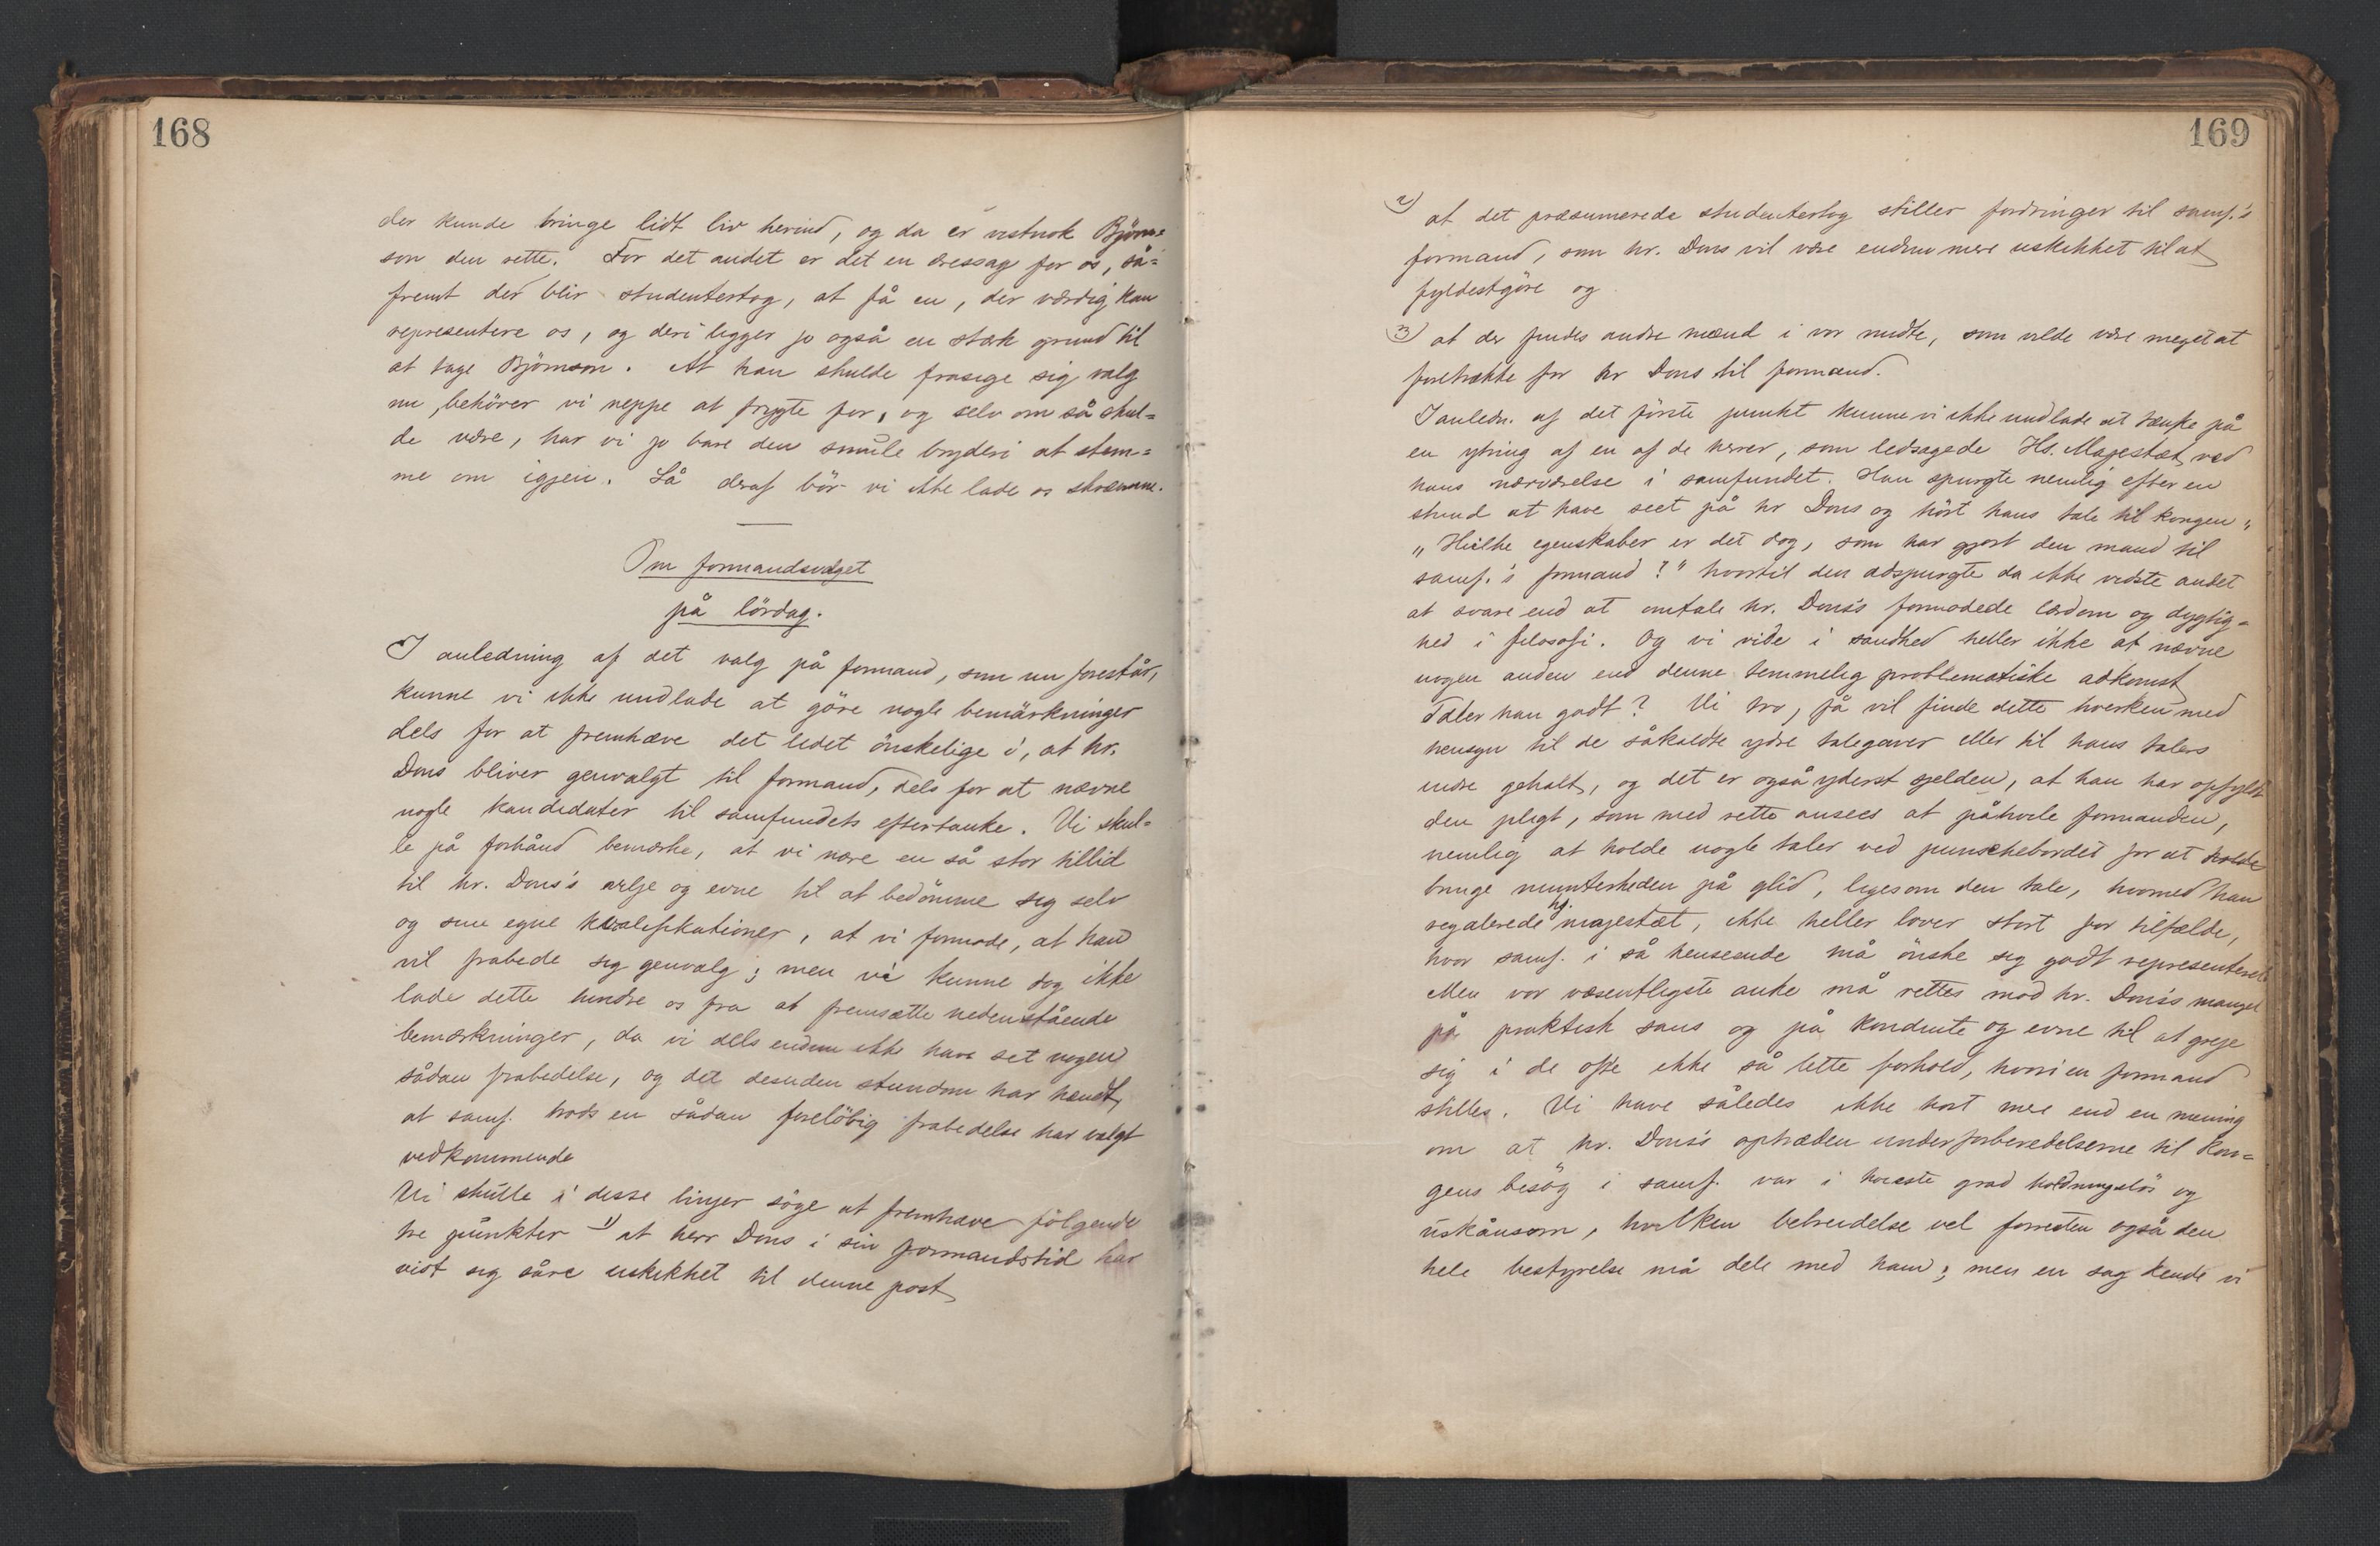 168
der kunde bringe lidt liv herind, og da er vistnok Björn-
son den rette. For det andet er det en æressag for os, så=
fremt der blir studentertog, at få en, der værdig kan
representere os, og deri ligger jo også en stærk grund til
at tage Björnson. At han skulde frasige sig valg
nu, behöver vi neppe at frygte for, og selv om så skul=
de være, har vi jo bare den smule bryderi at stem=
me om igjen. Så deraf bör vi ikke lade os skræmme.
Om formandsvalget
på lördag.
I anledning af det valg på formand, som nu forestår,
kunne vi ikke undlade at göre nogle bemärkninger
dels for at fremhæve det lidet önskelige i, at hr.
Dons bliver genvalgt til formand, dels for at nævne
nogle kandidater til samfundets eftertanke. Vi skul=
le på forhånd bemærke, at vi nære en så stor tillid
til hr. Dons's ærlje og evne til at bedömme sig selv
og sine egne kvalifikationer, at vi formode, at han
vil frabede sig genvalg; men vi kunne dog ikke
lade dette hindre os fra at fremsætte nedenstående
bemærkninger, da vi dels endnu ikke have set nogen
sådan frabedelse, og det desuden stundom har hændt,
at samf. trods en sådan forelöbig frabedelse har valgt
vedkommende
Vi skulle i disse linjer söge at fremhæve fölgende
tre punkter 1) at herr Dons i sin formandstid har
vist sig såre uskikket til denne post
169
2) at det præsumerede studentertog stiller fordringer til samf.'s
formand, som hr. Dons vil være endnu mere uskikket til at
fyldestgöre og
3) at der findes andre mænd i vor midte, som vilde være meget at
foretrække for hr Dons til formand.
I anledn. af det förste punkt kunne vi ikke undlade at tænke på
en ytring af en af de herrer, som ledsagede Hs. Majestæt ved
hans nærværelse i samfundet. Han spurgte nemlig efter en
stund at have seet på hr Dons og hört hans tale til kongen "
"Hvilke egenskaber er det dog, som har gjort den mand til
samf.'s formand?" hvortil den adspurgte da ikke vidste andet
at svare end at omtale hr. Dons's formodede lærdom og dygtig=
hed i filosofi. Og vi vide i sandhed heller ikke at nævne
nogen anden end denne temmelig problematiske adkomst
Taler han godt? Vi tro, få vil finde dette hverken med
hensyn til de såkaldte ydre talegaver eller til hans talers
indre gehalt, og det er også yderst sjelden, at han har opfyldt
den pligt, som med rette ansees at påhvile formanden,
nemlig at holde nogle taler ved punschebordet for at holde
bringe munterheden på glid, ligesom den tale, hvormed han
regalerede hs. majestæt, ikke heller lover stort for tilfælde,
hvor samf. i så henseende må önske sig godt representeret
Men vor væsentligste anke må rettes mod hr. Dons's mangel
på praktisk sans og på konduite og evne til at greje
sig i de ofte ikke så lette forhold, hvori en formand
stilles. Vi have således ikke hört mer end en mening
om at hr. Dons's optræden under forberedelserne til kon=
gens besög i samf. var i höieste grad holdningslös og
uskånsom, hvilken bebreidelse vel forresten også den
hele bestyrelse må dele med ham; men en sag kende vi